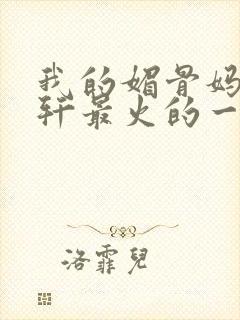 我的媚骨妈
轩最火的一
洛霏兒